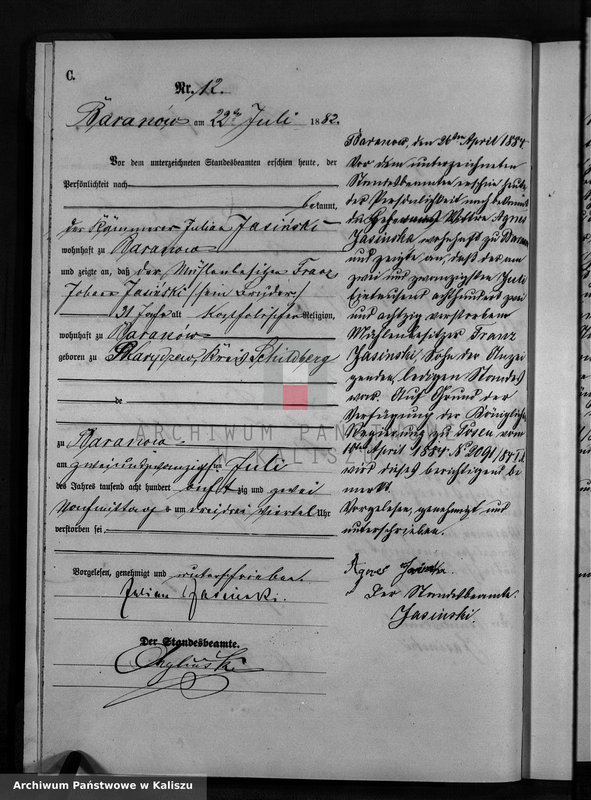 C.
Nr. 12.
Baranów am 22ten Juli 1882.
Vor dem unterzeichneten Standesbeamten erschien heute, der
Persönlichkeit nach
bekannt,
der Kämmerer Julian Jasiński
wohnhaft zu Baranow
und zeigte an, daß der Mühlenbesitzer Franz
Johann Jasiński (sein Bruder)
31 Jahr alt katholischer Religion,
wohnhaft zu Baranów
geboren zu Kreis Schildberg
de
zu Baranow
am zweiundzwanzigsten Juli
des Jahres tausend acht hundert achtzig und zwei
Nachmittags um drei drei viertel Uhr
verstorben sei
Vorgelesen, genehmigt und unterschrieben.
Julian Jasinski.
Der Standesbeamte.
Baranow, den 26ten April 1884
Vor dem unterzeichneten
Standesbeamten erschien heute
der Persönlichkeit nach bekannt
die Wittwe Agnes
Jasinska wohnhaft zu Baranow
und zeigte an, daß der am
zwei und zwanzigsten Juli
Eintausend achthundert zwei
und achtzig verstorbene
Mühlenbesitzer Franz
Jasinski, Sohn der Anzei
genden, ledigen Standes
war. Auf Grund der
Verfügung der Königlichen
Regierung zu Posen vom
10ten April 1884 No 2091/84
wird dieses berichtigend be
merkt.
Vorgelesen, genehmigt und
unterschrieben.
Agnes Jasinska.
Der Standesbeamte
Jasinski
ARCHIWUM PAŃSTWOWE
W KALISZU
Archiwum Państwowe w Kaliszu